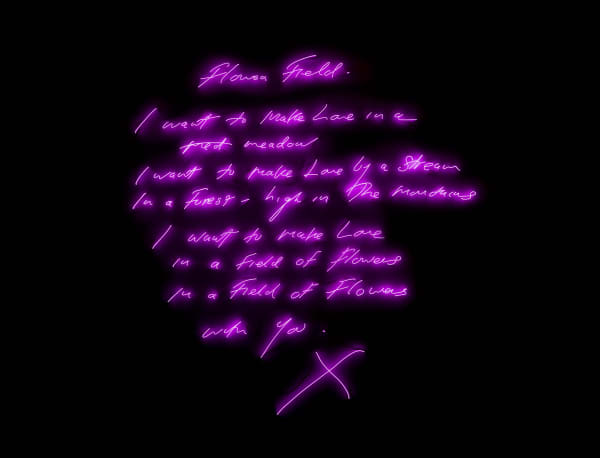 Flower Field.
I want to Make Love in a
meadow
I want to Make Love by a Stream
In a Forest - high in The mountains
I want to make Love
in a Field of Flowers
in a Field of Flowers
with You.
X